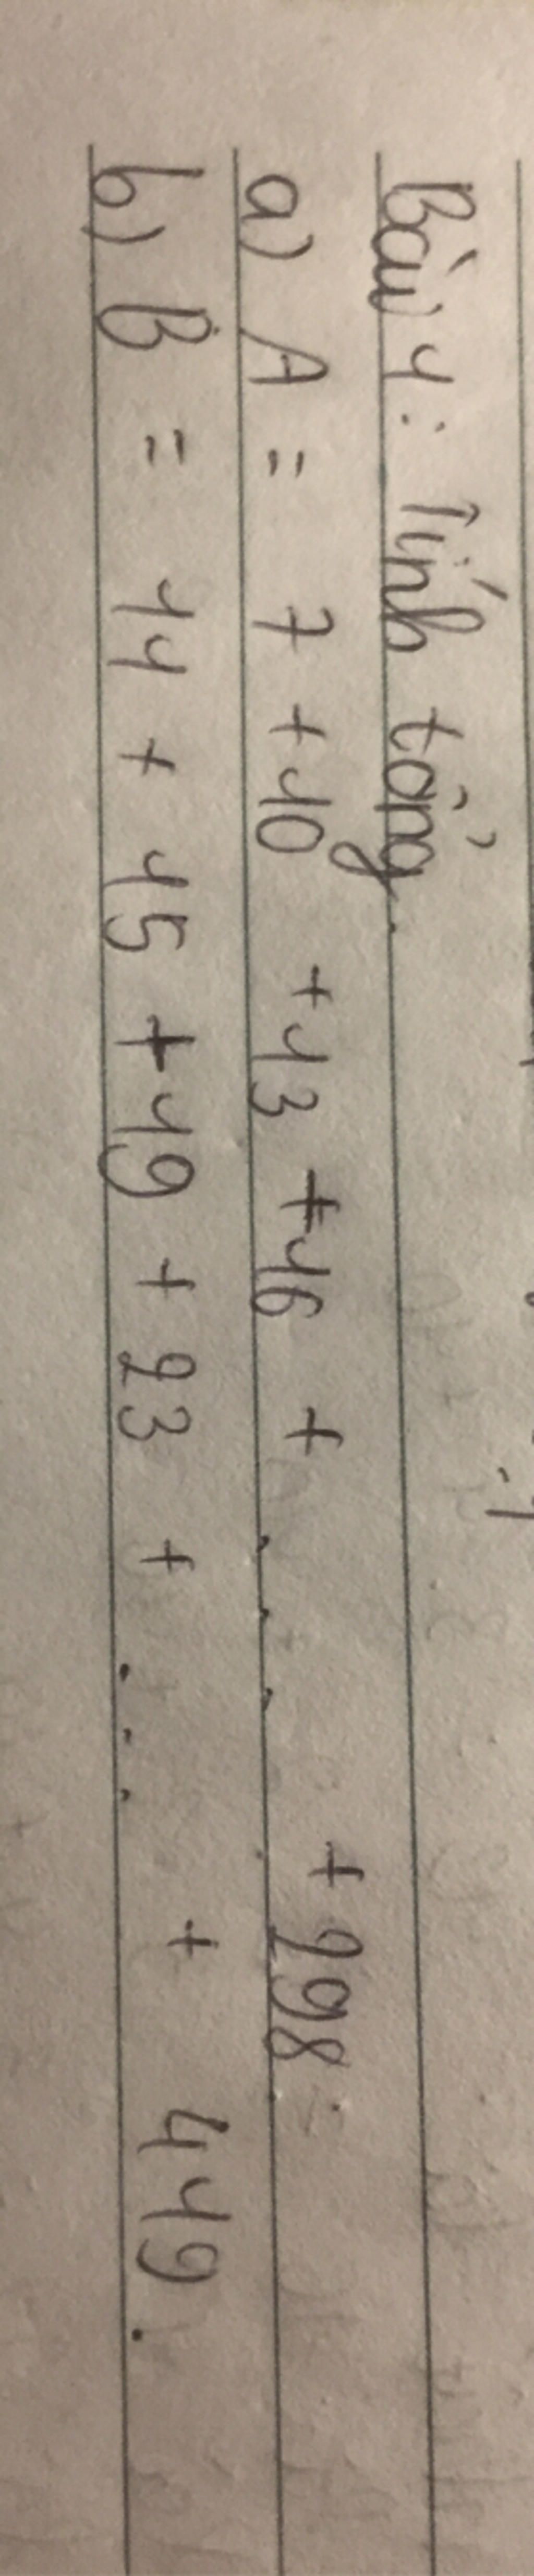 Bài 1: Tính tổng.
a) A = 7 + 10 + 13 + 16 + . . . + 298 =
b) B = 11 + 15 + 19 + 23 + . . . + 419.